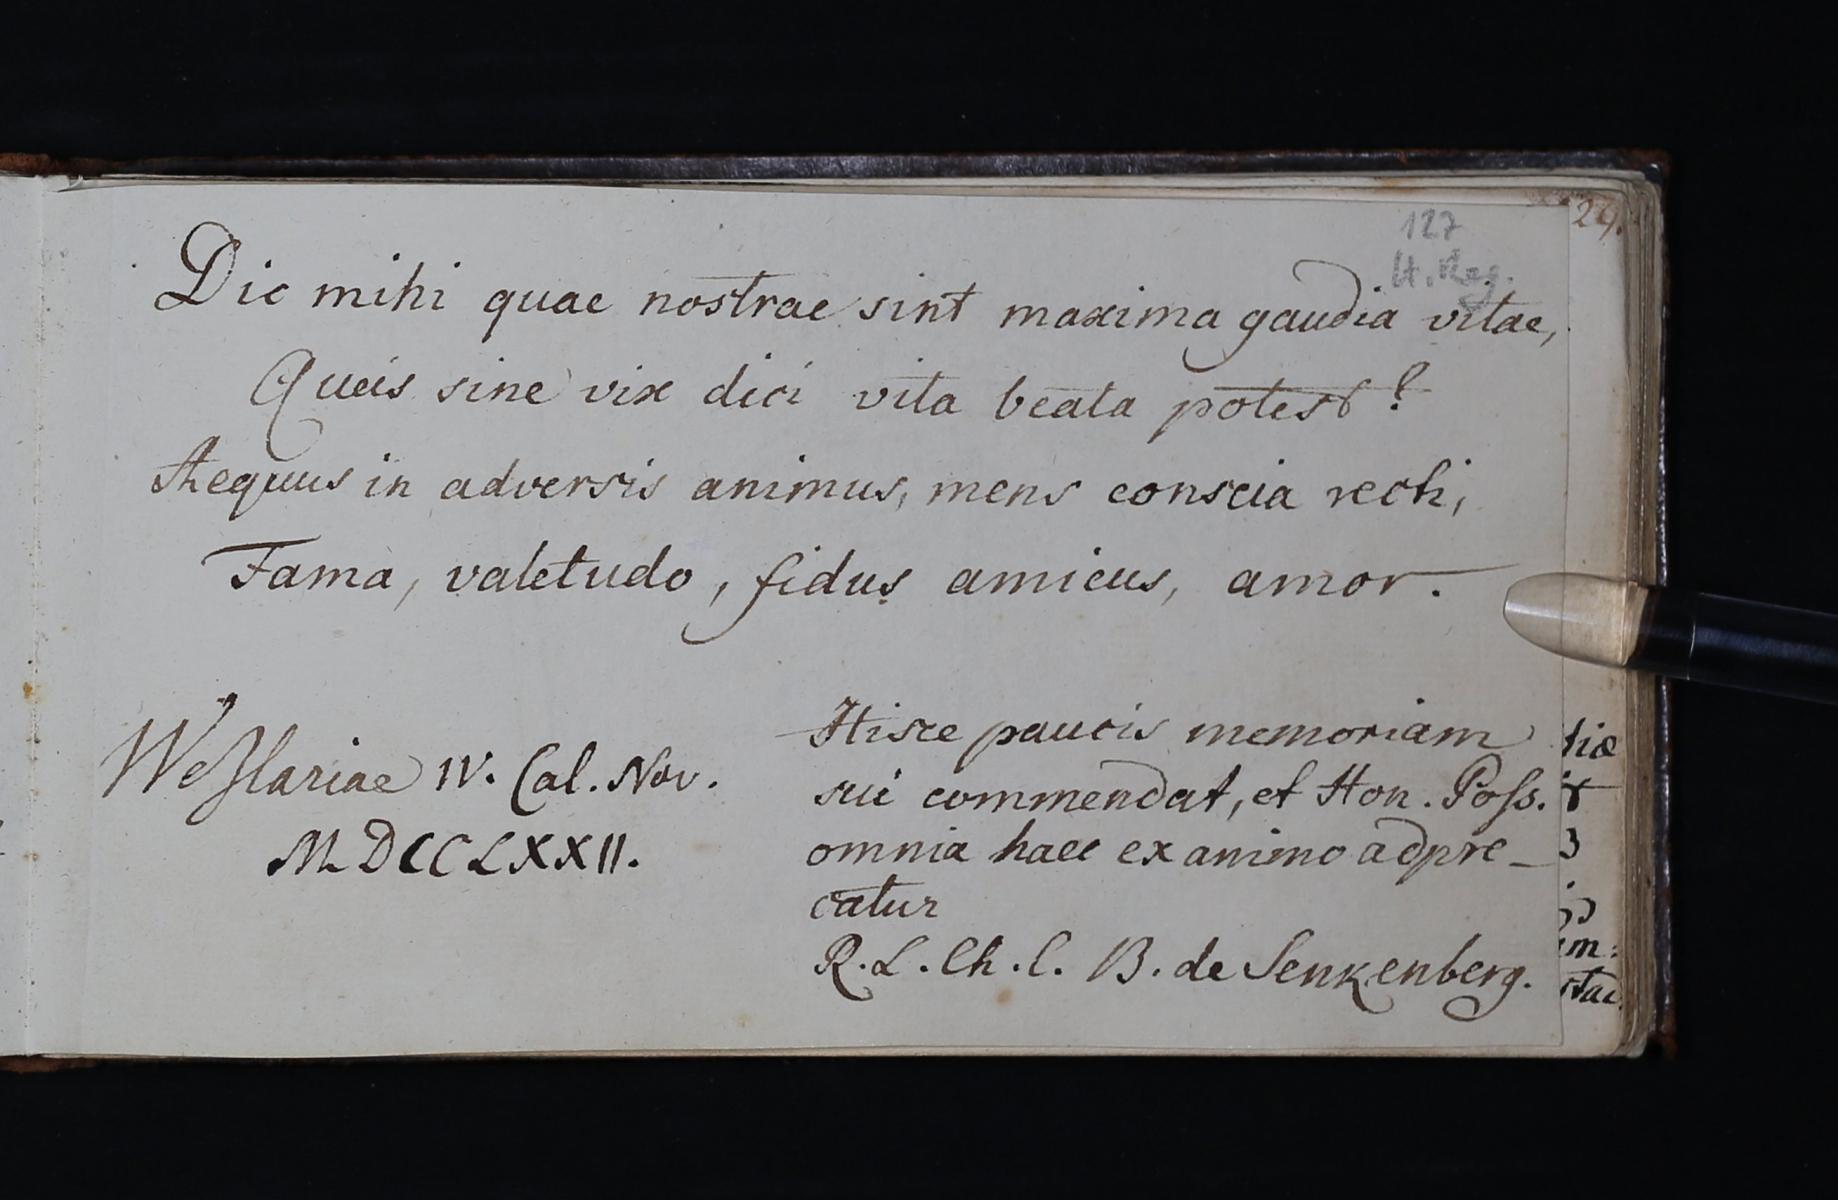 29.
127
Dic mihi quae nostrae sint maxima gaudia vitae,
Queis sine vix dici vita beata potest?
Aequus in adversis animus, mens conscia recti,
Fama, valetudo, fidus amicus, amor.
Wezlariae IV. Cal. Nov.
MDCCLXXII.
Hisce paucis memoriam
sui commendat, et Hon. Poss.
omnia haec ex animo adpre-
catur
R. L. Ch. L. B. de Senkenberg.